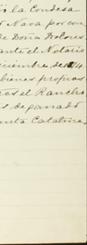 la Condesa
Nava por con
de Doña Dolores
ante el Notario
iciembre de
bienes propios
es el Rancho
de ganado
nta Catalina,